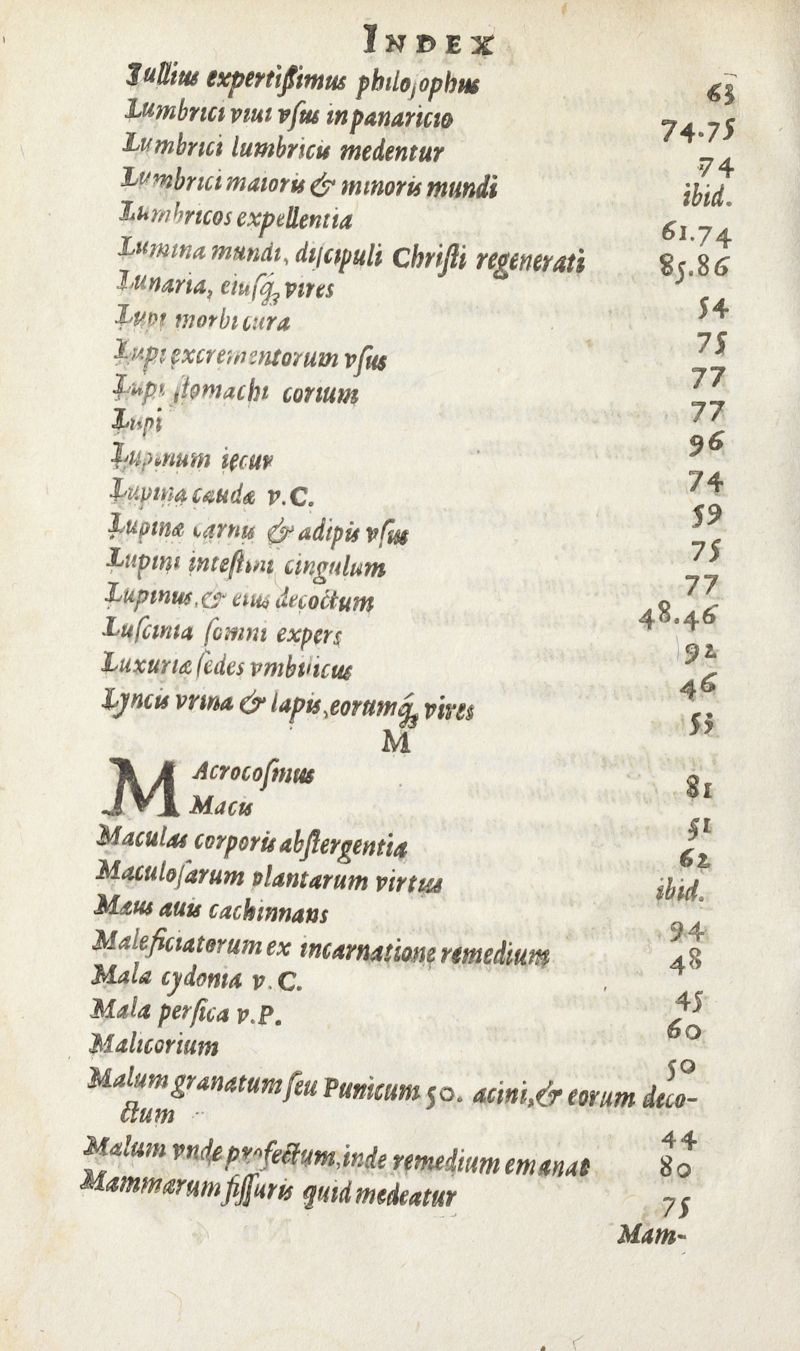 INDEX
Iullius expertißimus philoſophus 63
Lumbrici viui vſus in panaricio 74.75
Lumbrici lumbricis medentur 74
Lumbrici maioris & minoris mundi ibid.
Lumbricos expellentia 61.74
Lumina mundi, diſcipuli Chriſti regenerati 85.86
Lunaria, eiuſq́; vires 54
Lupi morbi cura 75
Lupi excrementorum vſus 77
Lupi ſtomachi corium 77
Lupi 96
Lupinum iecur 74
Lupina caudæ v.C. 59
Lupinæ carnis & adipis vſus 75
Lupini inteſtini cingulum 77
Lupinus, & eius decoctum 48.46
Luſcinia ſomni expers 92
Luxuriæ ſedes vmbilicus 46
Lyncis vrina & lapis, eorumq́; vires 55
M
MAcrocoſmus 81
Macis 51
Maculas corporis abſtergentia 62
Maculoſarum plantarum virtus ibid.
Mæus auis cachinnans 94
Maleficiatorum ex incarnatione remedium 48
Mala cydonia v.C. 45
Mala perſica v.P. 60
Malicorium 50
Malum granatum ſeu Punicum 50. acini, & eorum deco-
ctum 44
Malum vnde profectum, inde remedium emanat 80
Mammarum fiſſuris quid medeatur 75
Mam-